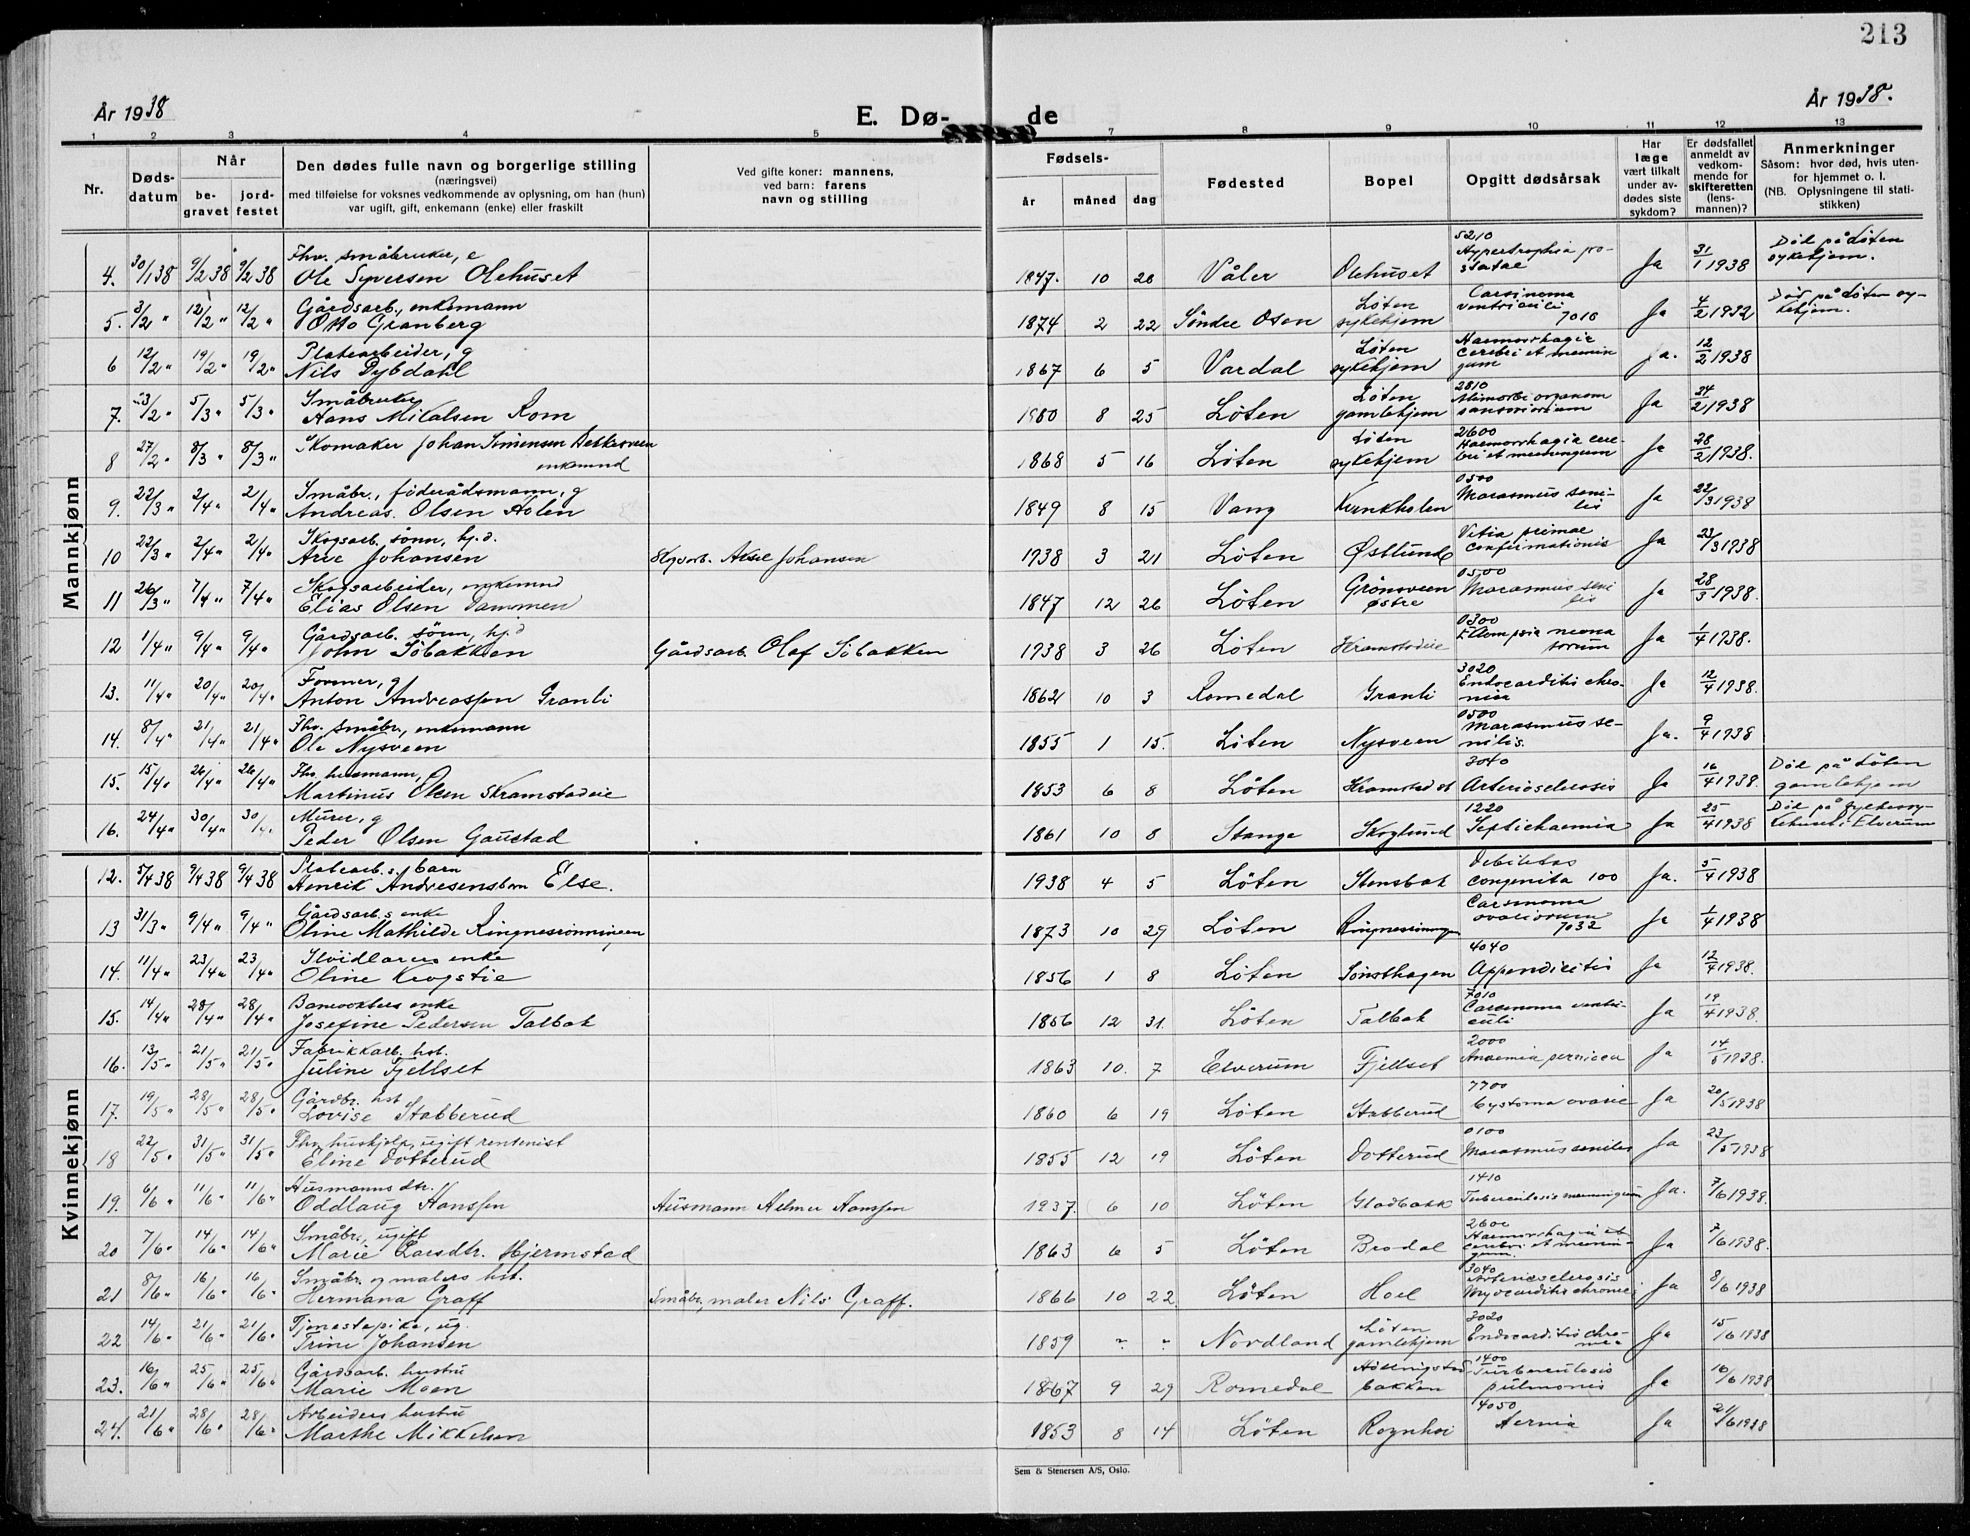 213
År 1938
E. Dø-
de
År 1938.
1 2 3 4 5 7 8 9 10 11 12 13
Nr.
Døds-
datum
Når
be-
gravet
jord-
festet
Den dødes fulle navn og borgerlige stilling
(næringsvei)
med tilføielse for voksnes vedkommende av oplysning, om han (hun)
var ugift, gift, enkemann (enke) eller fraskilt
Ved gifte koner: mannens,
ved barn: farens
navn og stilling
Fødsels-
år måned dag
Fødested
Bopel
Opgitt dødsårsak
Har
læge
vært tilkalt
under av-
dødes siste
sykdom?
Er dødsfallet
anmeldt av
vedkom-
mende for
skifteretten
(lens-
mannen)?
Anmerkninger
Såsom: hvor død, hvis uten-
for hjemmet o. l.
(NB. Oplysningene til stati-
stikken)
Mannkjønn
4. 30/1 38 9/2 38 9/2 38 Fhv. småbruker, e
Ole Syversen Olehuset 1847. 10 28 Våler Olehuset 5210 Hypertrophia pro-
statae Ja 31/1 1938 Död på Löten
sykehjem.
5. 3/2 " 12/2 " 12/2 " Gårdsarb., enkemann
Otto Granberg 1874 2 22 Söndre Osen Löten
sykehjem Carsinoma
ventriculi 7010 Ja 4/2 1932 Död på Löten sy-
kehjem.
6 12/2 " 19/2 " 19/2 " Platearbeider, g
Nils Dybdahl 1867 6 5 Vardal Löten
sykehjem Haemorrhagie
cerebri et menin
gum Ja. 12/2 1938
7. 5/3 " 5/3 " Småbruker
Hans Mikalsen Rom 8 25 Löten Löten
gamlehjem 2810 Ja 24/2 1938
8 27/2 " 8/3 " 8/3 " Skomaker Johan Simensen
enkemnd 1868 5 16 Löten Löten
sykehjem 2600
Haemorrhagia cere-
bri et meningum Ja 28/2 1938.
9. 22/3 " 2/4 " 2/4 " Småbr., föderådsmann, g
Andreas Olsen Holen 1849 8 15 Vang 0500
Marasmus seni-
lis Ja 22/3 1938
10 22/3 " 2/4 " 2/4 " Skogsarb. sönn, hj.d.
Arve Johansen Skogsarb. Aksel Johansen 1938 3 21 Löten Østlund Vitia primae
conformationis Ja 23/3 1938
11 26/3 " 7/4 " 7/4 " Skogsarbeider, enkemnd
Elias Olsen Dammen 1847 12 26 Löten Grönsveen
østre 0500
Marasmus seni
lis Ja 28/3 1938.
12 1/4 " 9/4 " 9/4 " Gårdsarb. sönn, hj.d
John Söbakken Gårdsarb. Olaf Söbakken 1938 3 26 Löten Skramstadeie 0300
Eklampsia neona
torum Ja 1/4 1938.
13. 11/4 " 20/4 " 20/4 " Former, g
Anton Andreassen Granli 1862 10 3 Romedal Granli 3020
Endocarditis chro-
nica Ja 12/4 1938.
14. 8/4 " 21/4 " 21/4 " Fhv. småbr., enkemann
Ole Nysveen 1855 1 15. Löten Nysveen 0500
Marasmus se-
nilis. Ja. 9/4 1938
15. 15/4 " 26/4 " 26/4 " Fhv. husmann,
Martinus Olsen Skramstadeie 1853 6 8 Löten Skramstad et 3040
Arteriosclerosis Ja 16/4 1938. Död på Löten
gamlehjem
16. 24/4 " 30/4 " 30/4 " Murer, g
Peder Olsen Gaustad 1861 10 8 Stange Skoglund 1220
Septichaemia Ja 25/4 1938 Död på fylkessy-
kehuset i Elverum
Kvinnekjønn
12. 5/4 38 9/4 38 9/4 38 Platearb.s. barn
Henrik Andresens barn Else. 1938 4 5 Löten Stensbak Debilitas
congenita 100 Ja. 5/4 1938
13 31/3 " 9/4 " 9/4 " Gårdsarb.s enke
Oline Mathilde Ringnesrönningen 1873 10 29 Löten Ringnesrönningen Carsinoma
ovariorum
7032 Ja 1/4 1938
14. 11/4 " 23/4 " 23/4 " enke
Oline Krogstie 1856 1 8 Löten Sönsthagen 4040
Appendicitis Ja 12/4 1938.
15. 14/4 " 28/4 " 28/4 " Banevokters enke
Josefine Pedersen Talbak 1856 12 31. Löten Talbak 7010
Carcinoma ventri-
culi Ja 19/4 1938.
16. 13/5 " 21/5 " 21/5 " Fabrikkarb. hst.
Juline Fjellset 1863 10. 7 Elverum Fjellset 2000
Anaemia perniciosa Ja 14/5 1938.
17. 19/5 " 28/5 " 28/5 " Gårdbr. hst
Lovise Stabberud 1860 6 19 Löten Stabberud 7700
Cystoma ovarie Ja 20/5 1938
18 22/5 " 31/5 " 31/5 " Fhv. hushjelp, ugift rentenist
Eline Dotterud 1855 12 19 Löten Dotterud 0100
Marasmus senilis Ja 23/5 1938
19. 6/6 " 11/6 " 11/6 " Husmanns dtr.
Oddlaug Hanssen Husmann Helmer Hanssen 1937 6 10 Löten Gladbakk 1410
Tuberculosis meningum Ja. 7/6 1938.
20 7/6 " 14/6 " 14/6 " Småbr., ugift
Marie Larsdtr. Hjermstad 1863 6 5 Löten Brodal 2600
Haemorrhagia et
cerebri et menin-
gum. Ja 7/6 1938.
21 8/6 " 16/6 " 16/6 " Småbr. og malers hst.
Hermana Graff Småbr., maler Nils Graff. 1866 10 22 Löten Hoel 3040
Arteriosclerosis
Myocarditis chronic Ja 8/6 1938
22 14/6 " 21/6 " 21/6 " Tjenestepike, ug.
Trine Johansen 1859 " " Nordland Löten
gamlehjem 3020
Endocarditis chro-
nica Ja 15/6 1938
23. 16/6 " 25/6 " 25/6 " Gårdsarb. hustru
Marie Moen 1867 9 29 Romedal Höllingstad
bakken 1400
Turberculosis
pulmonis Ja 16/6 1938
24. 21/6 " 28/6 " 28/6 " Arbeiders hustru
Marthe Mikkelsen 1853 8 14 Löten Rognhoi 4050
Hernia Ja 21/6 1938
Sem & Stenersen A/S, Oslo.